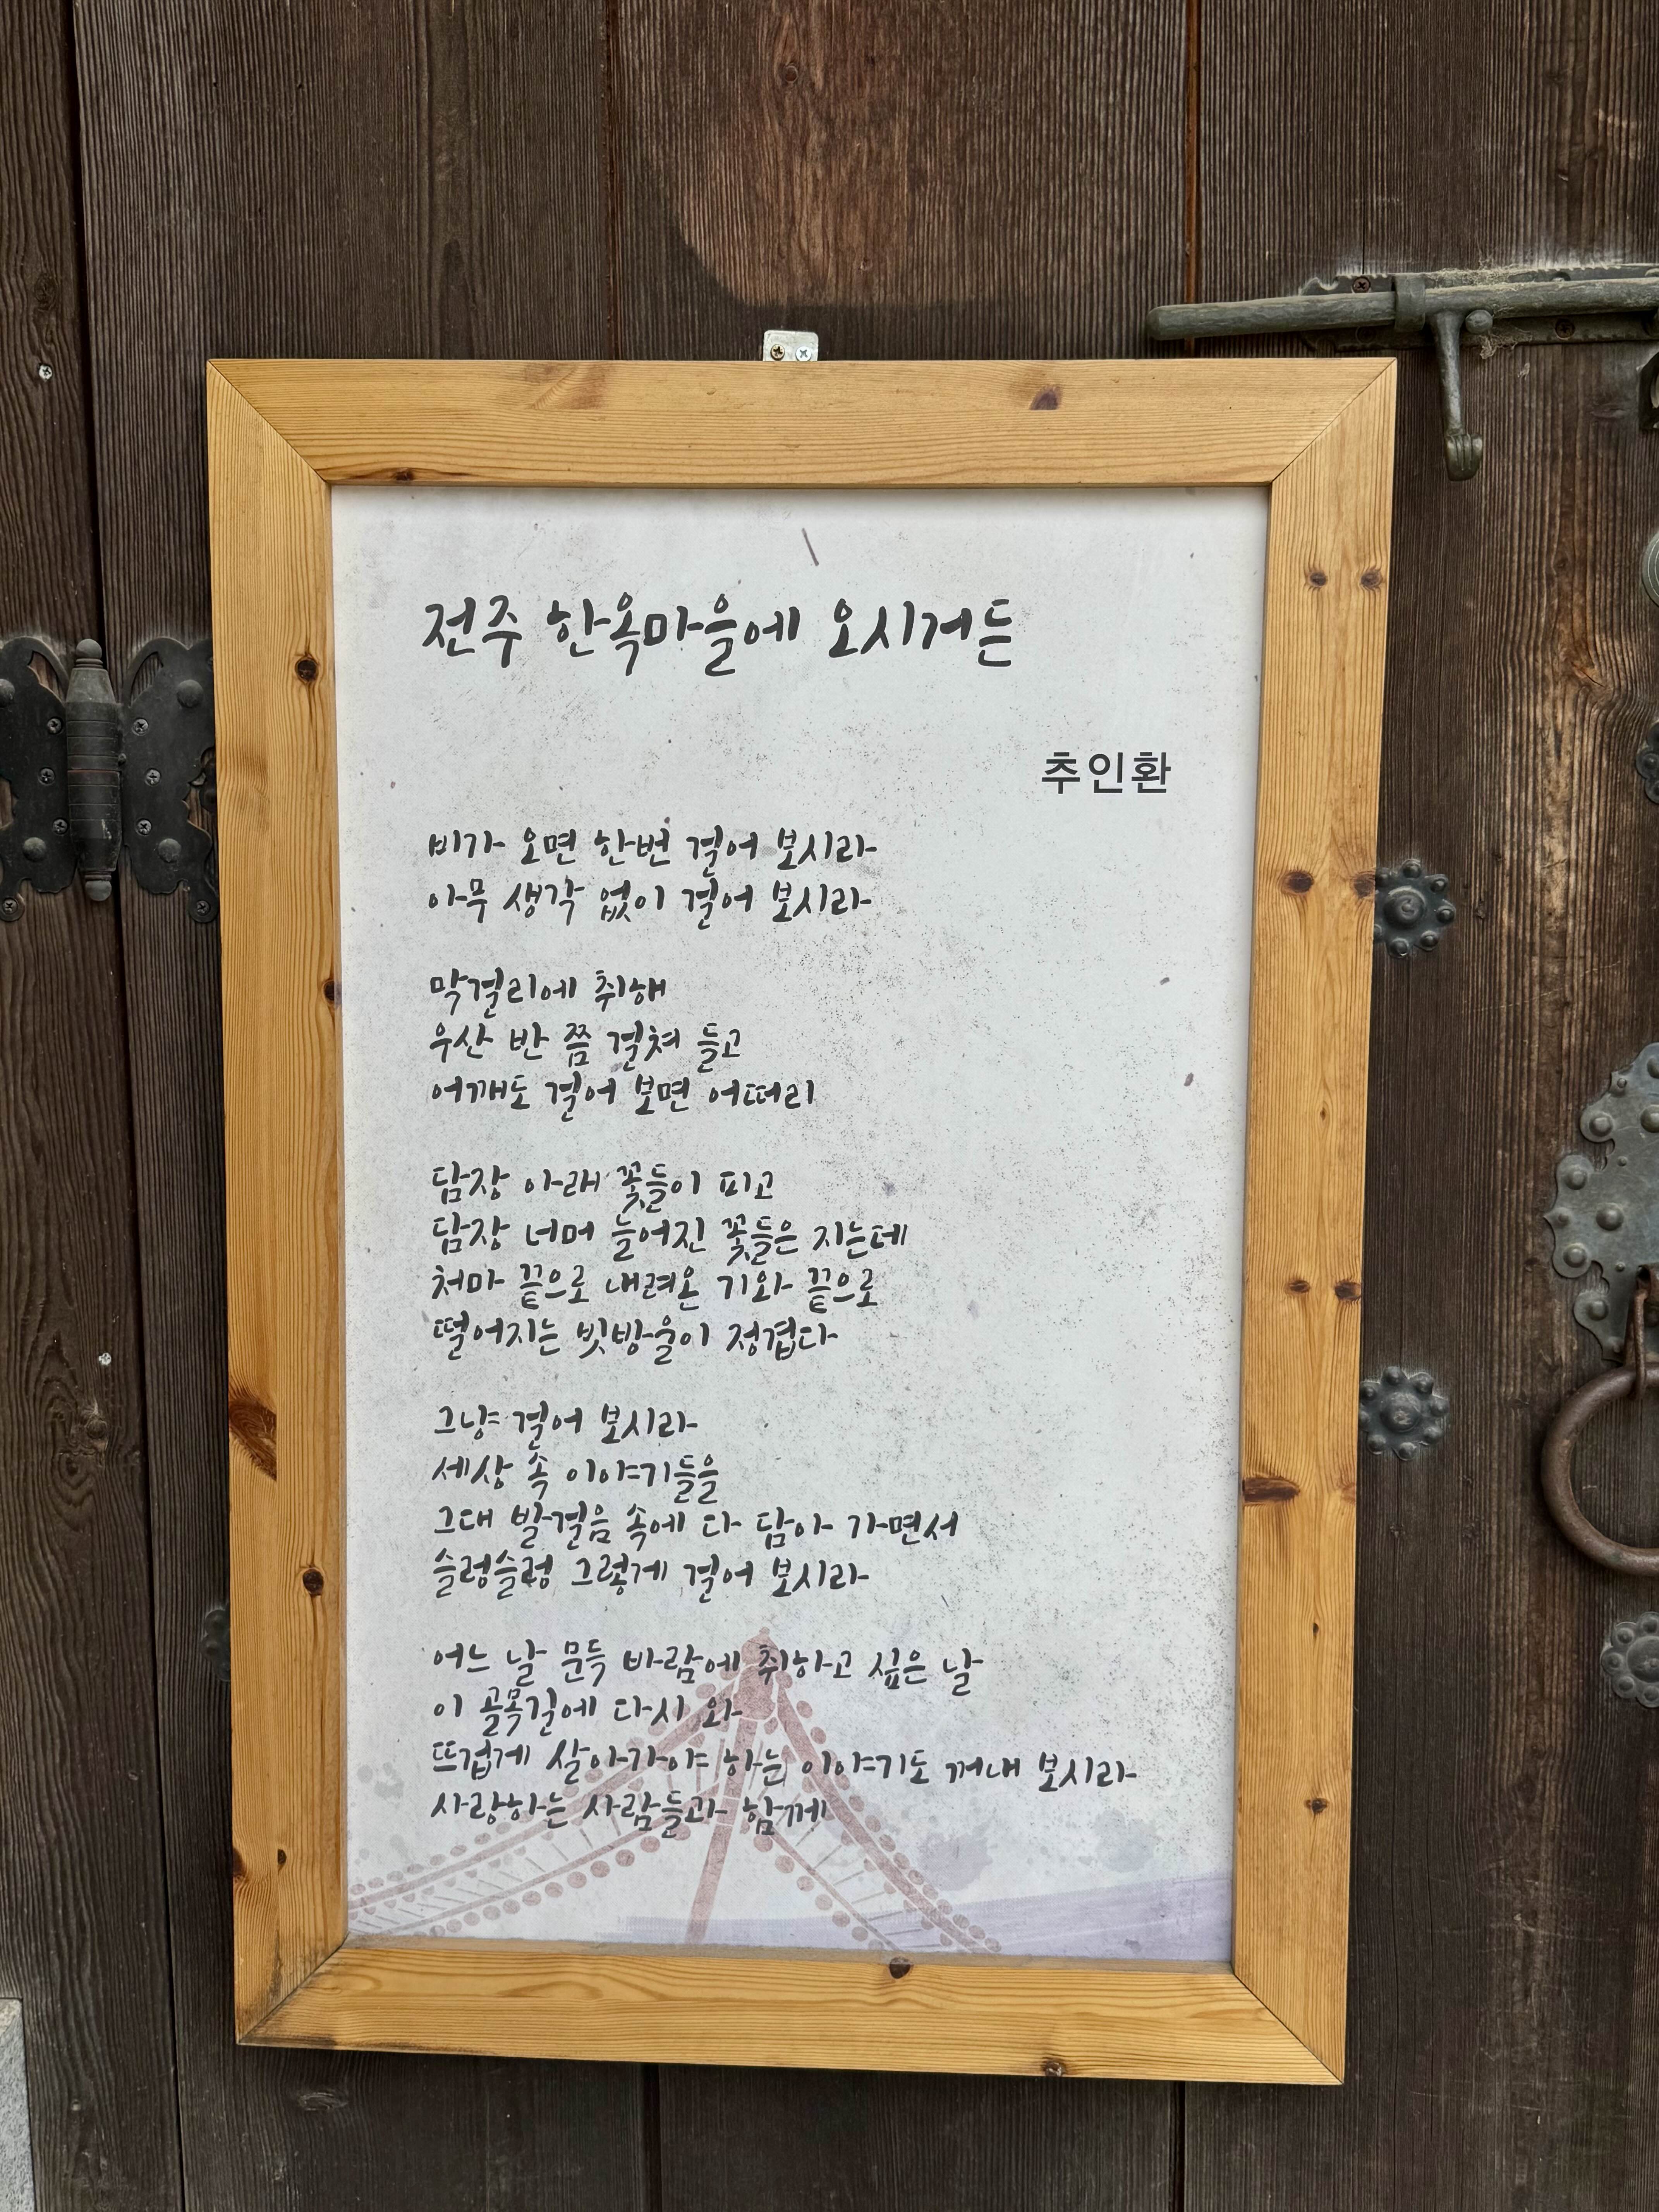 전주 한옥마을에 오시거든
추인환
비가 오면 한번 걸어 보시라
아무 생각 없이 걸어 보시라
막걸리에 취해
우산 반 쯤 걸쳐 들고
어깨도 걸어 보면 어떠리
담장 아래 꽃들이 피고
담장 너머 늘어진 꽃들은 지는데
처마 끝으로 내려온 기와 끝으로
떨어지는 빗방울이 정겹다
그냥 걸어 보시라
세상 속 이야기들을
그대 발걸음 속에 다 담아 가면서
슬렁슬렁 그렇게 걸어 보시라
어느 날 문득 바람에 취하고 싶은 날
이 골목길에 다시 와
뜨겁게 살아가야 하는 이야기도 꺼내 보시라
사랑하는 사람들과 함께